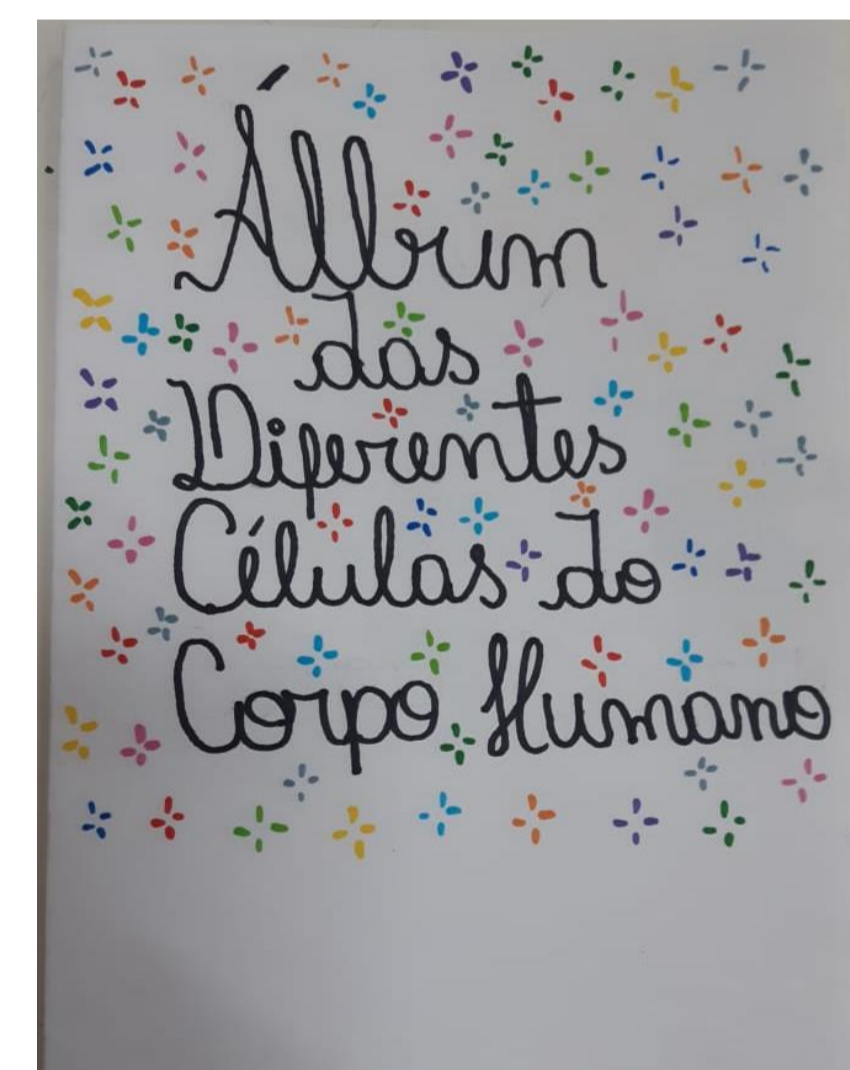 Álbum
das
Diferentes
Células do
Corpo Humano